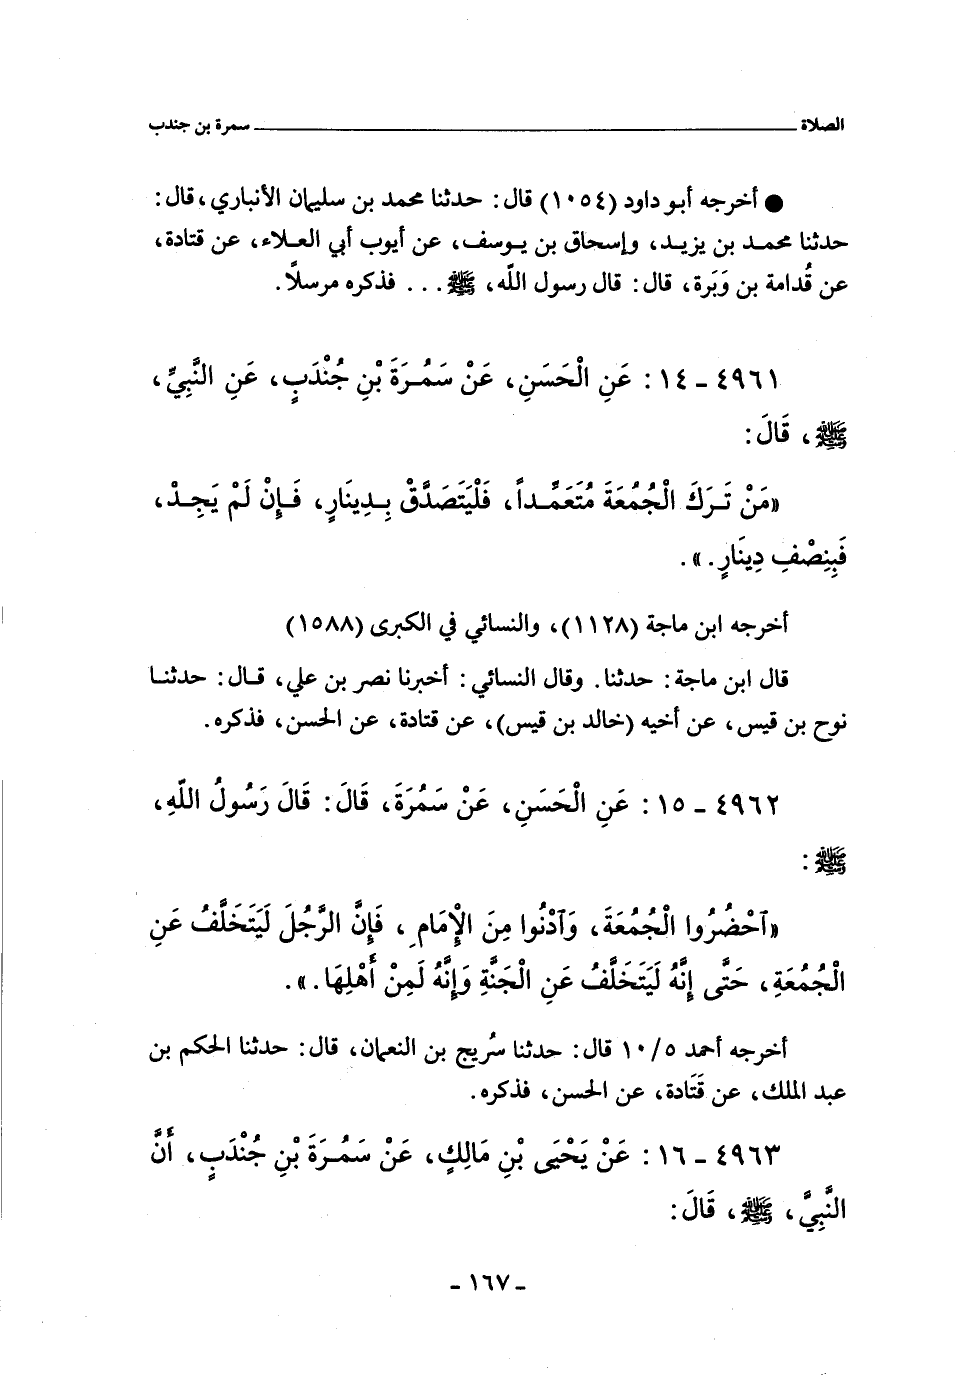 الصلاة ــــــــــ سمرة بن جندب
● أخرجه أبو داود (١٠٥٤) قال: حدثنا محمد بن سليمان الأنباري، قال:
حدثنا محمد بن يزيد، وإسحاق بن يوسف، عن أيوب أبي العلاء، عن قتادة،
عن قُدامة بن وَبَرة، قال: قال رسول اللّه، ﷺ... فذكره مرسلًا.
٤٩٦١ - ١٤: عَنِ الْحَسَنِ، عَنْ سَمُرَةَ بْنِ جُنْدَبٍ، عَنِ النَّبِيِّ،
ﷺ، قَالَ:
«مَنْ تَرَكَ الْجُمُعَةَ مُتَعَمِّداً، فَلْيَتَصَدَّقْ بِدِينَارٍ، فَإِنْ لَمْ يَجِدْ،
فَبِنِصْفِ دِينَارٍ.».
أخرجه ابن ماجة (١١٢٨)، والنسائي في الكبرى (١٥٨٨)
قال ابن ماجة: حدثنا. وقال النسائي: أخبرنا نصر بن علي، قال: حدثنا
نوح بن قيس، عن أخيه (خالد بن قيس)، عن قتادة، عن الحسن، فذكره.
٤٩٦٢ - ١٥: عَنِ الْحَسَنِ، عَنْ سَمُرَةَ، قَالَ: قَالَ رَسُولُ اللّهِ،
ﷺ:
«آحْضُرُوا الْجُمُعَةَ، وَآدْنُوا مِنَ الْإِمَامِ، فَإِنَّ الرَّجُلَ لَيَتَخَلَّفُ عَنِ
الْجُمُعَةِ، حَتَّى إِنَّهُ لَيَتَخَلَّفُ عَنِ الْجَنَّةِ وَإِنَّهُ لَمِنْ أَهْلِهَا.».
أخرجه أحمد ١٠/٥ قال: حدثنا سُريج بن النعمان، قال: حدثنا الحكم بن
عبد الملك، عن قَتَادة، عن الحسن، فذكره.
٤٩٦٣ - ١٦: عَنْ يَحْيَى بْنِ مَالِكٍ، عَنْ سَمُرَةَ بْنِ جُنْدَبٍ، أَنَّ
النَّبِيَّ، ﷺ، قَالَ:
- ١٦٧ -